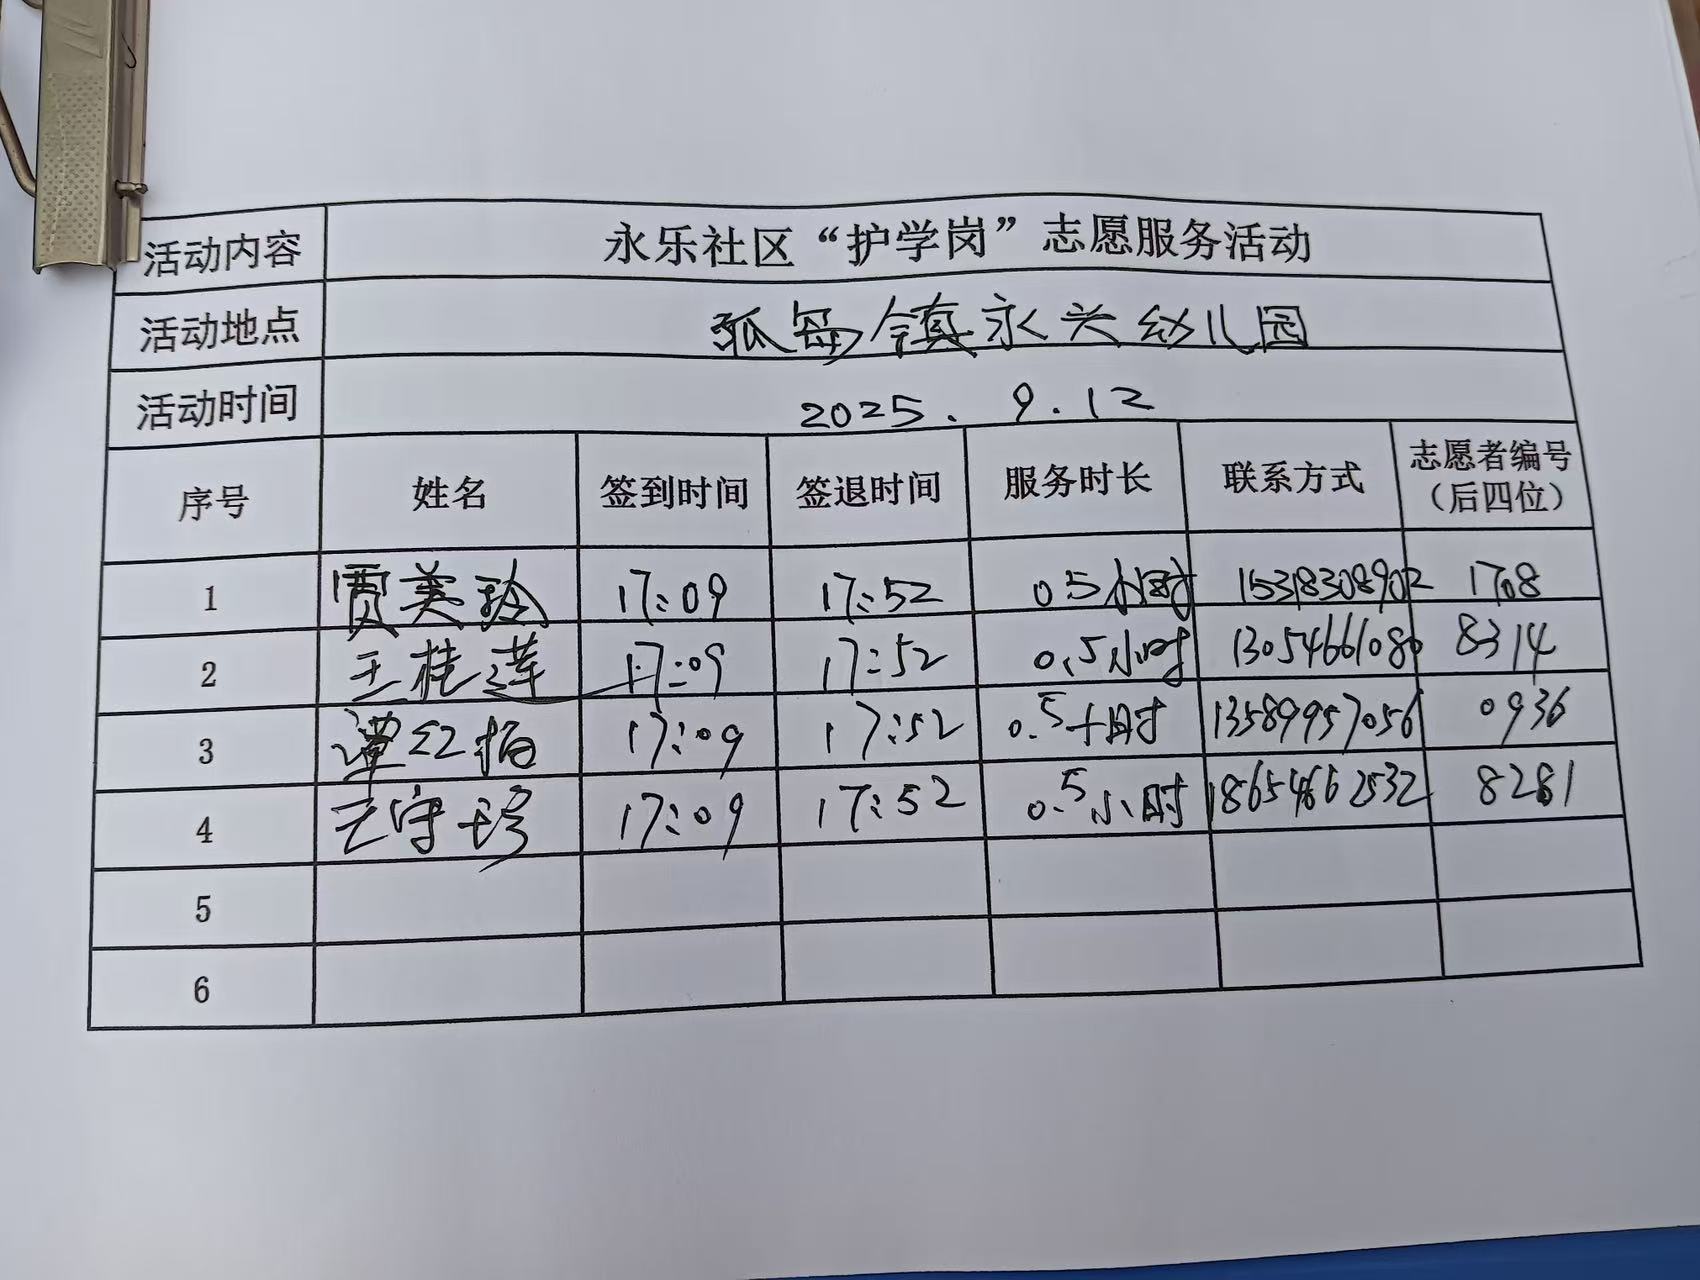 活动内容 永乐社区“护学岗”志愿服务活动
活动地点 孤岛镇永兴幼儿园
活动时间 2025.9.12
序号 姓名 签到时间 签退时间 服务时长 联系方式 志愿者编号（后四位）
1 贾美玲 17:09 17:52 0.5小时 15318308902 1708
2 王桂莲 17:09 17:52 0.5小时 13054661080 8314
3 谭红梅 17:09 17:52 0.5小时 13589957056 0936
4 王守珍 17:09 17:52 0.5小时 18654662532 8281
5
6